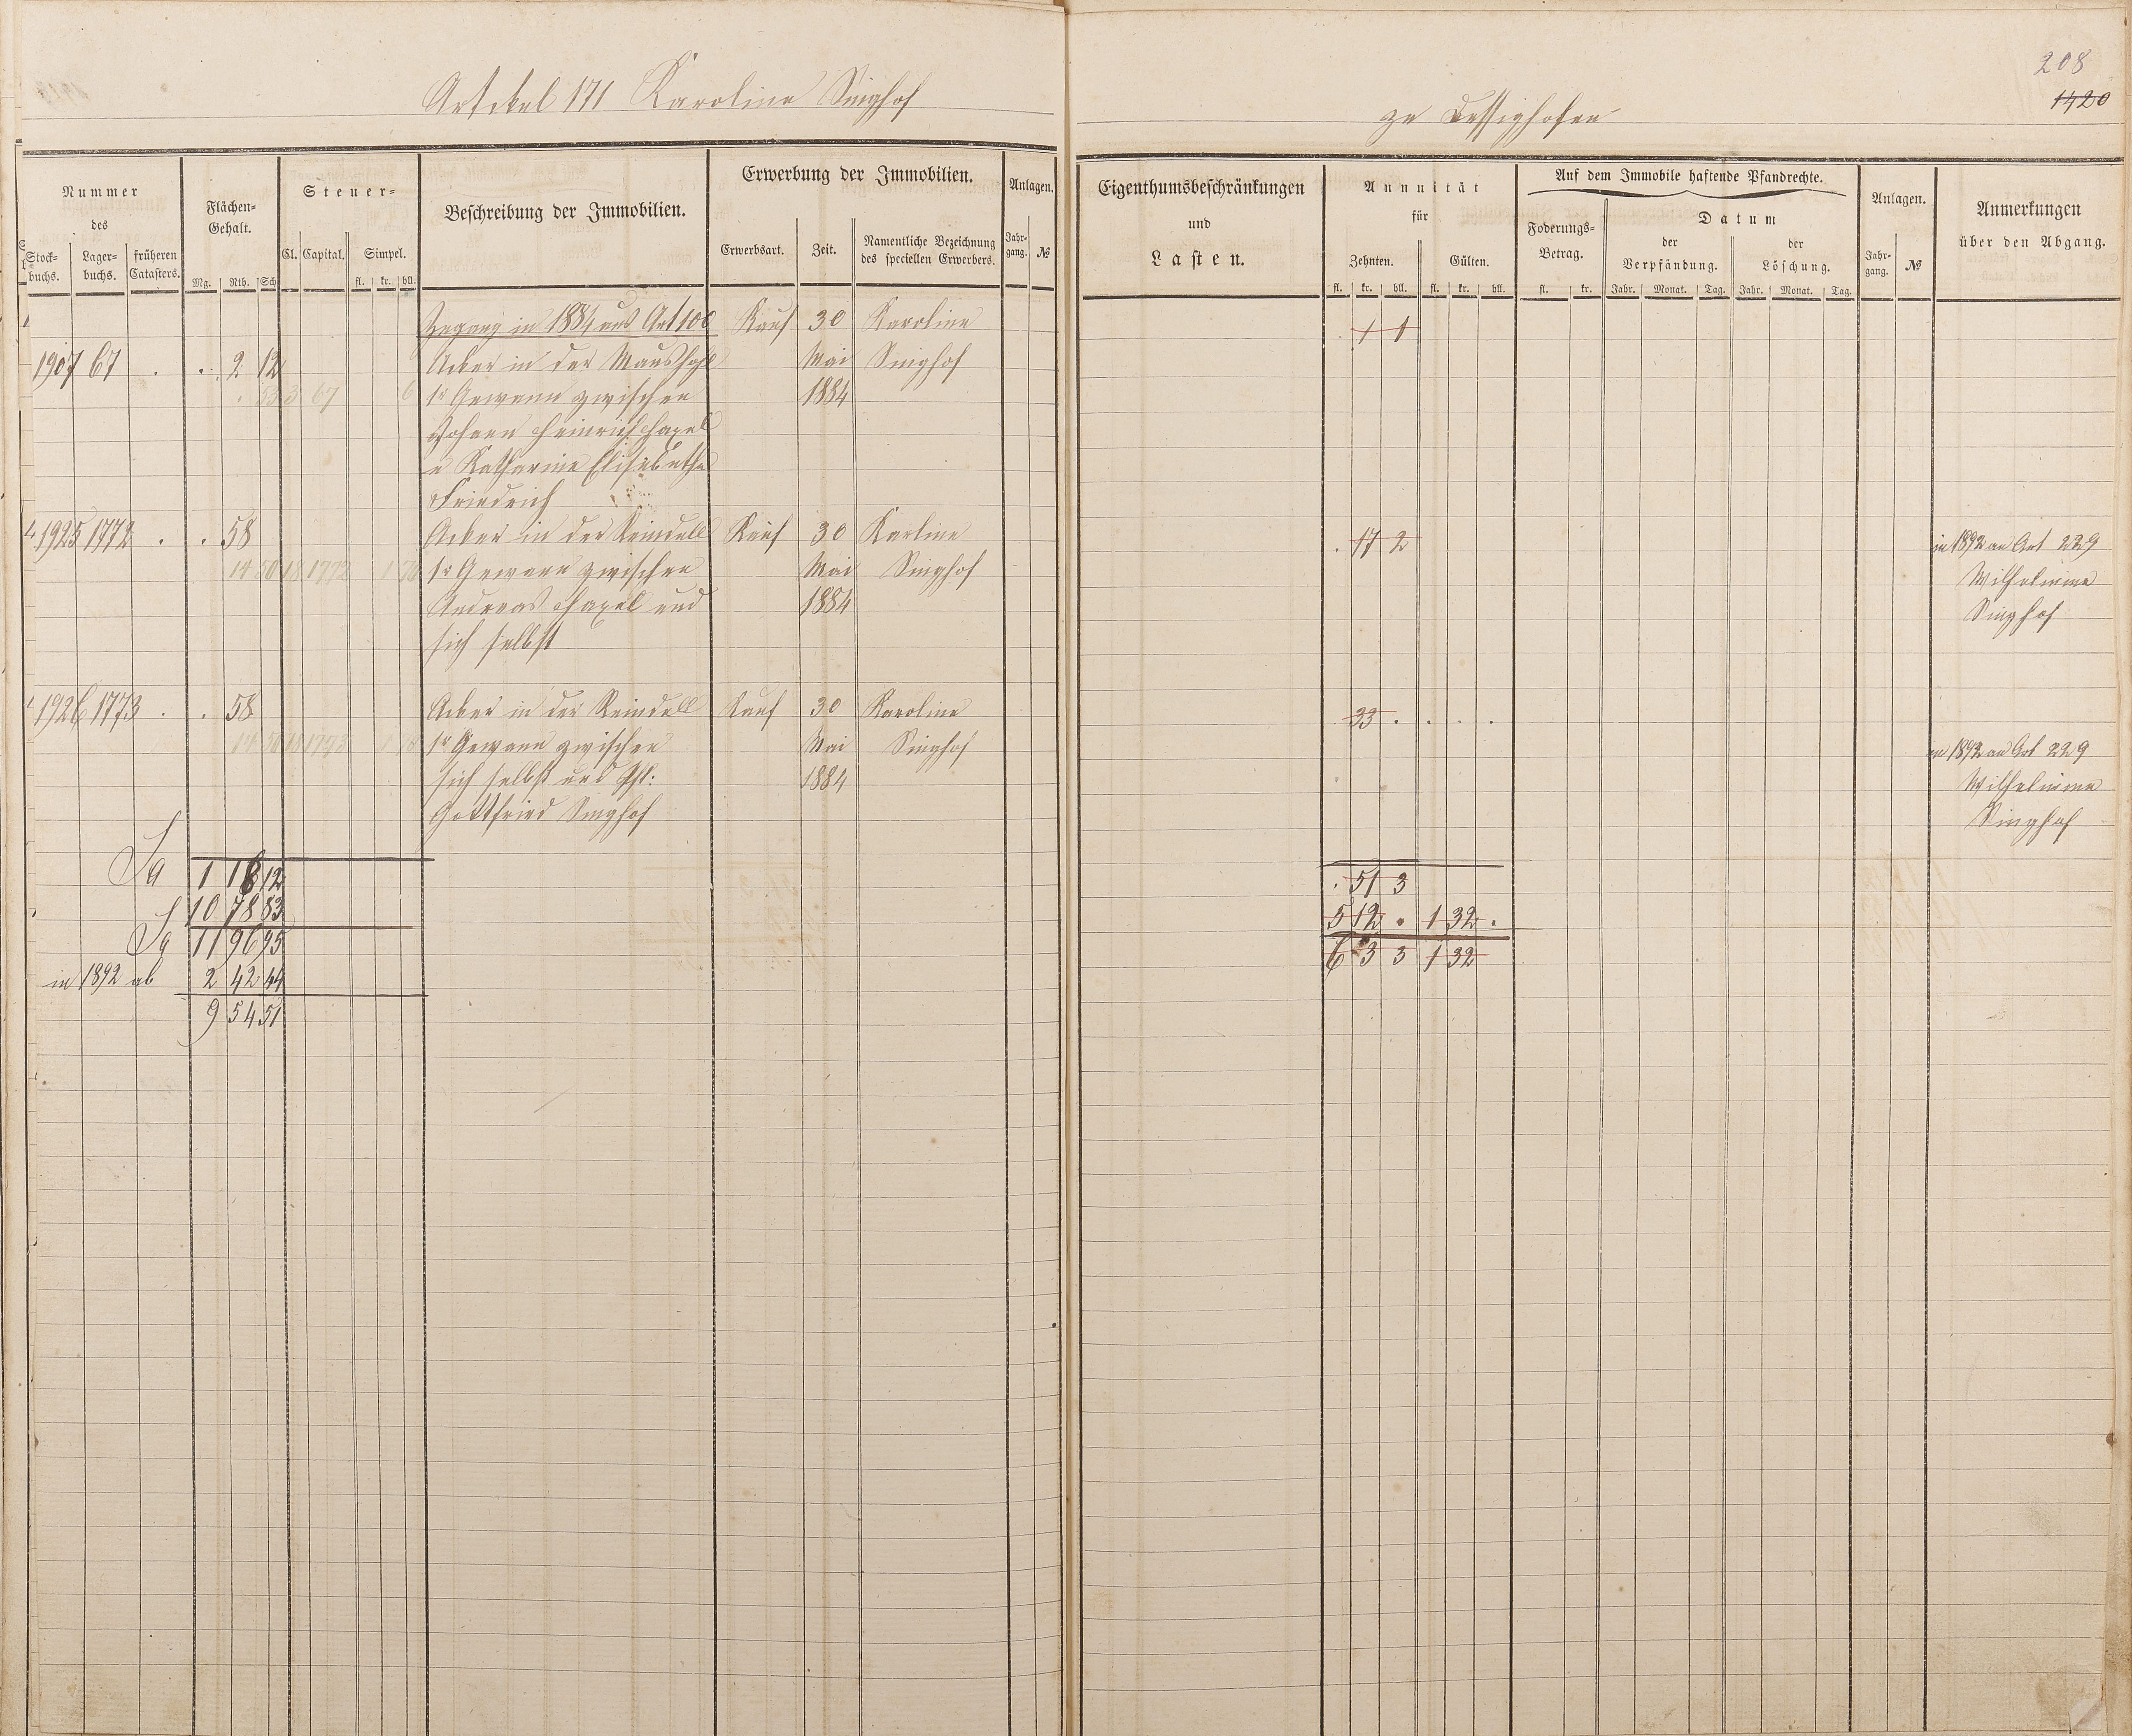 Artikel 171 Karoline Singhof
zu Dessighofen
208
1420
Nummer
des
Stock-
buchs.
Lager-
buchs.
früheren
Catasters.
Flächen-
Gehalt.
Mg. Rth. Sch
Steuer-
Cl. Capital. Simpel.
fl. kr. hll.
Beschreibung der Immobilien.
Erwerbung der Immobilien.
Erwerbsart. Zeit.
Namentliche Bezeichnung
des speciellen Erwerbers.
Anlagen.
Jahr-
gang. №
Eigenthumsbeschränkungen
und
Lasten.
Annuität
für
Zehnten. Gülten.
fl. kr. hll. fl. kr. hll.
Auf dem Immobile haftende Pfandrechte.
Foderungs-
Betrag.
fl. kr.
Datum
der
Verpfändung.
der
Löschung.
Jahr. Monat. Tag. Jahr. Monat. Tag.
Anlagen.
Jahr-
gang. №
Anmerkungen
über den Abgang.
Zugang in 1884 aus Art 100 Kauf 30 Karoline . 1 1
1907 67 . . 2 12 Acker in der Maushohl Mai Singhof
. 53 3 67 6 1r Gewann zwischen 1884
Johann Heinrich Hapel
u Katharine Elisabetha
Friedrich
1925 1772 . . 58 Acker in der Reindell Kauf 30 Karline . 17 2 in 1892 an Art 229
14 50 18 1772 1r Gewann zwischen Mai Singhof Wilhelmine
Andreas Hapel und 1884 Singhof
sich selbst
1926 1773 . . 58 Acker in der Reindell Kauf 30 Karoline . 33 . . . .
14 50 18 1773 1r Gewann zwischen Mai Singhof in 1892 an Art 229
sich selbst und Phl: 1884 Wilhelmine
Gottfried Singhof Singhof
Sa 1 18 12 . 51 3
10 78 83 5 12 . 1 32 .
Sa 11 96 95 6 3 3 1 32
in 1892 ab 2 42 44
9 54 51